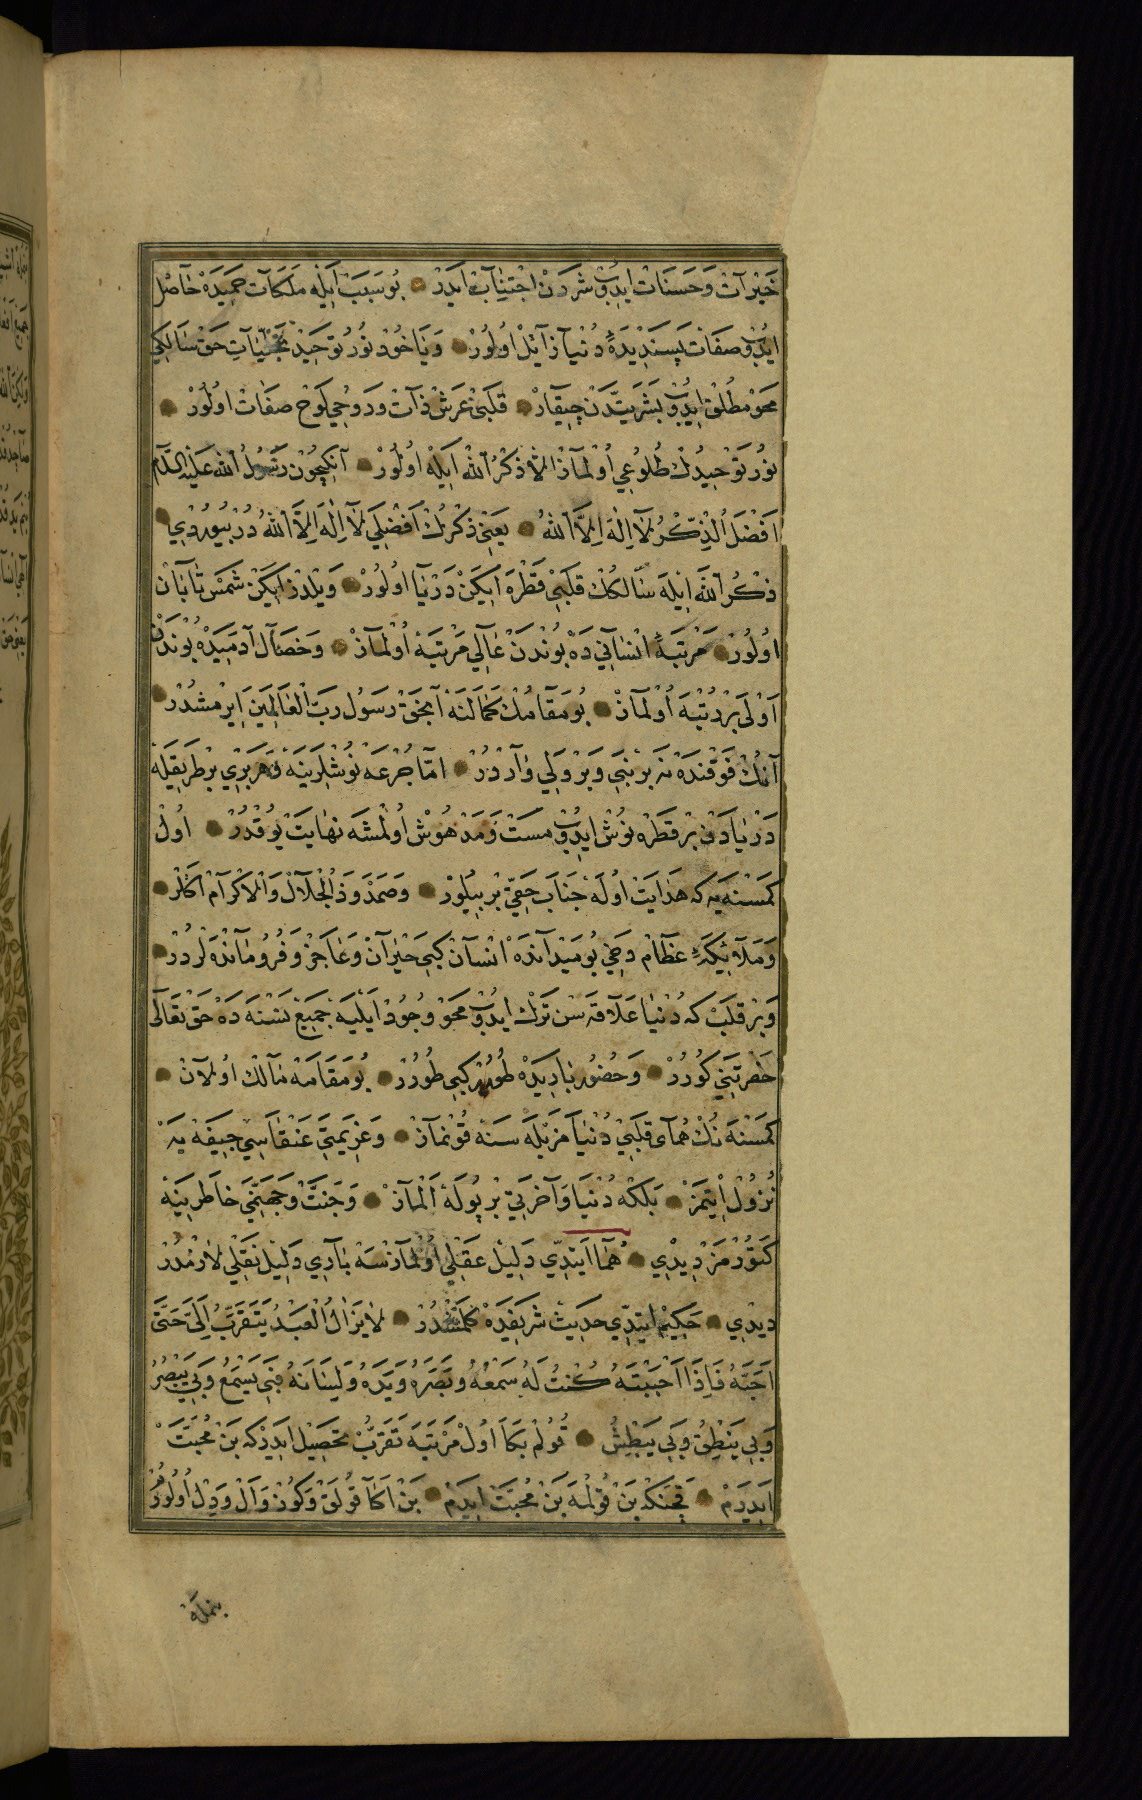 خَيْرَات وَحَسَنَات ايدُوبْ شَرْدَنْ اجْتِنَابْ ايدَرْ بُو سَبَبْ ايلَه مَلَكَات حَميدَه حَاصِل
ايدُوب صِفَات پَسَنْديدَهٔ دُنْيَا زَائِلْ اولُورْ وَيَا خُودْ نُورُ تَوْحيدْ تَجَلِّيَاتِ حَقْ سَالِكِي
مَحْو مُطْلَقْ ايدُوبْ بَشَرِيَّتْدَنْ چِيقَارْ قَلْبِي عَرْش ذَات وَرُوحِي لَوْح صِفَاتْ اولُورْ
نُور تَوْحيدُكْ طُلُوعِي اُولْمَازْ الَّا ذِكْرُ اللّٰه ايلَه اُولُورْ آنِكچُونْ رَسُولُ اللّٰه عَلَيْه السَّلَام
اَفْضَلُ الذِّكْرُ لَا اِلٰهَ اِلَّا اللّٰهُ يَعْنِي ذِكْرُكْ اَفْضَلِي لَا اِلٰهَ اِلَّا اللّٰهُ دُرْ بُيُورْدِي
ذِكْرُ اللّٰه ايلَه سَالِكُكْ قَلْبِي قَطْرَه ايكَنْ دَرْيَا اولُورْ وَيِلْدِزْ ايكَنْ شَمْس تَابَانْ
اولُورْ مَرْتَبَهٔ انْسَانِي دَه بُونْدَنْ عَالِي مَرْتَبَه اُولْمَازْ وَخِصَال آدَمِيَدَه بُونْدَنْ
اَوْلَى بِرْ رُتْبَه اُولْمَازْ بُو مَقَامُكْ كَمَالَنَه آنْجَقْ رَسُول رَبّ الْعَالَمينَ ايرْمِشْدُرْ
آنُكْ فَوْقِنْدَه نَه بِرْ نَبِي وَبِرْ وَلِي وَارْدُرْ امَّا جُرْعَه نُوشْلَرِينَه وَهَرْبِرِي بِرْ طَرِيقَلَه
دَرْيَادَنْ بِرْ قَطْرَه نُوشْ ايدُوبْ مَسْتْ وَمَدْهُوشْ اُولْمِشَه نِهَايَتْ يُوقْدُرْ اُولْ
كِمْسَنَه يَه كِه هِدَايَتْ اولَه جَنَاب حَقِّي بِرْ بِيلُورْ وَصَمَدْ وَذُ الْجَلَالْ وَالْاكْرَامْ اكْلَرْ
وَمَلَائِكَهٔ عِظَامْ دَخِي بُو مَيْدَانْدَه انْسَانْ كِبِي حَيْرَانْ وَعَاجِزْ وَفُرُومَانْدَه لَرْدُرْ
وَبِرْ قَلْبْ كِه دُنْيَا عَلَاقَه سِنْ تَرْك ايدُوبْ مَحْو وُجُودْ ايلَيَه جَميعْ نَسْنَه دَه حَقْ تَعَالَى
حَضْرَتِنِي كُورُرْ وَحُضُور بَارِيدَه طُورُرْ كِبِي طُورُرْ بُو مَقَامَه مَالِكْ اولَانْ
كِمْسَنَه نُكْ هُمَاى قَلْبِي دُنْيَا مَزْبَلَه سِنَه قُونْمَازْ وَعَزِيمَتِي عَنْقَاسِي جيفَه يَه
نُزُولْ ايتمَزْ بَلْكِه دُنْيَا وَآخِرَتِي بِرْ پُولَه آلْمَازْ وَجَنَّتْ وَجَهَنَّمِي خَاطِرِينَه
كَتُورْمَزْ دِيدِي هُمَا ايتدِي دَلِيل عَقْلِي اُولْمَازْسَه بَارِي دَلِيل نَقْلِي لَازمْدُرْ
دِيدِي حَكِيمْ ايتدِي حَدِيث شَرِيفْدَه كَلْمِشْدُرْ لَا يَزَالُ الْعَبْدُ يَتَقَرَّبُ اِلَيَّ حَتَّى
اُحِبَّهُ فَاِذَا اَحْبَبْتَهُ كُنْتُ لَهُ سَمْعَهُ وَبَصَرَهُ وَيَدَهُ وَلِسَانَهُ فَبِي يَسْمَعُ وَبِي يَبْصُرُ
وَبِي يَنْطِقُ وَبِي يَبْطِشُ قُولُمْ بَكَا اُولْ مَرْتَبَه تَقَرُّبْ تَحْصِيلْ ايدَرْ كِه بَنْ مُحَبَّتْ
ايدَرَمْ قَچَنْكِه بَنْ قُولُمَه بَنْ مُحَبَّتْ ايدَمْ بَنْ اَكَا قُولَقْ وَكُوزْ وَالْ وَدِلْ اُولُورُمْ
بنمله